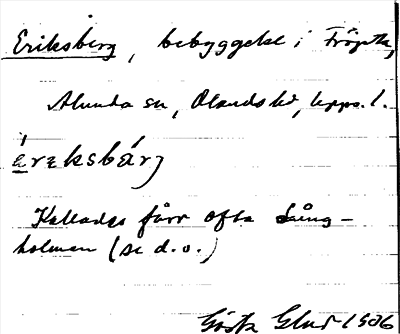 Eriksberg, bebyggelse i Fröpta,
Alunda sn, Olands hd, Upps. l.
éreksbárj
Kallades förr ofta Lång-
holmen (se d.o.)
Gösta 1986